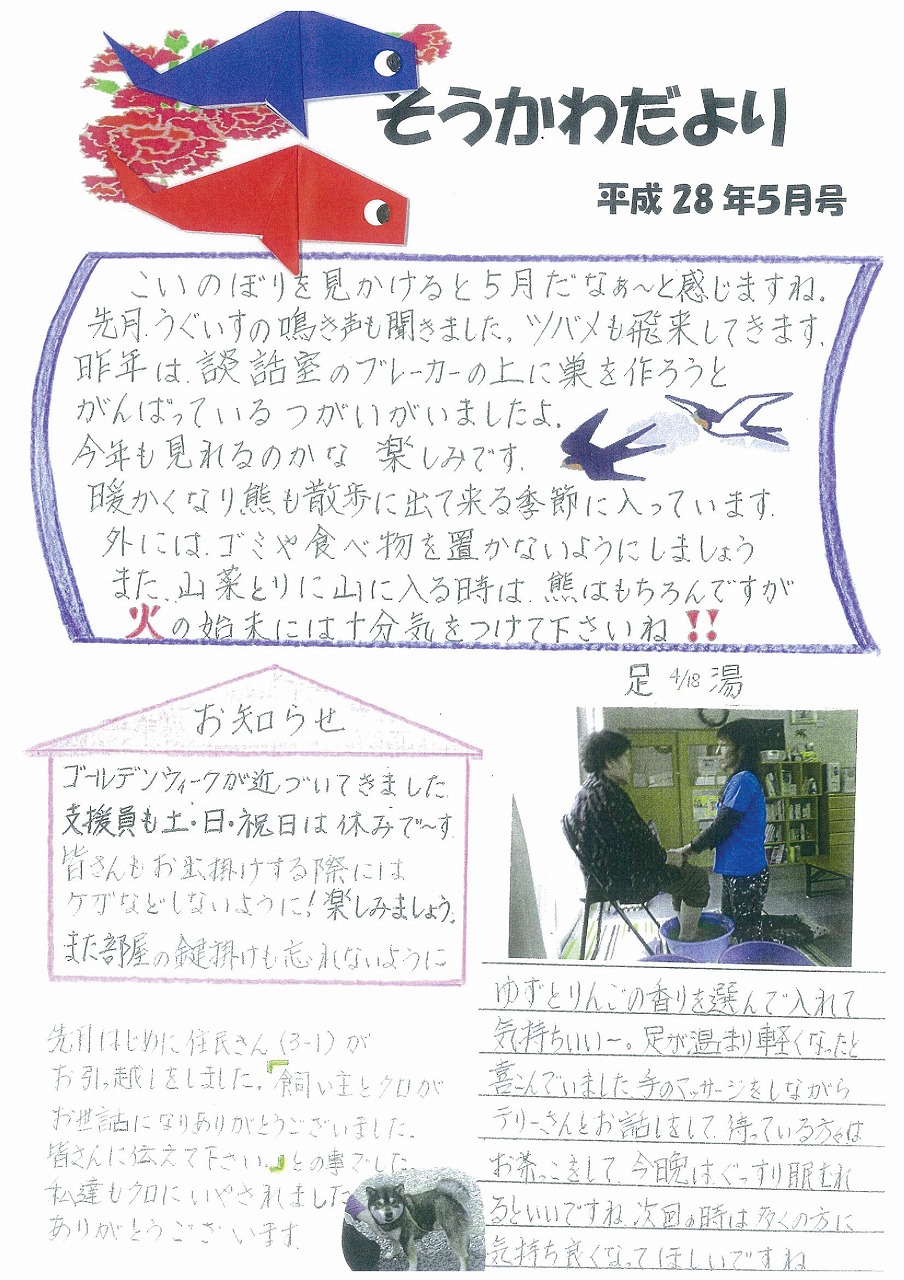 そうかわだより
平成28年5月号
こいのぼりを見かけると5月だなぁ〜と感じますね。
先月、うぐいすの鳴き声も聞きました。ツバメも飛来してきます。
昨年は、談話室のブレーカーの上に巣を作ろうと
がんばっているつがいがいましたよ。
今年も見れるのかな 楽しみです。
暖かくなり、熊も散歩に出て来る季節に入っています。
外には、ゴミや食べ物を置かないようにしましょう
また、山菜とりに山に入る時は、熊はもちろんですが
火の始末には十分気をつけて下さいね!!
お知らせ
ゴールデンウィークが近づいてきました
支援員も土・日・祝日は休みで〜す
皆さんもお出掛けする際には
ケガなどしないように!楽しみましょう。
また部屋の鍵掛けも忘れないように
先月はじめに住民さん(3-1)が
お引っ越しをしました。『飼い主とクロが
お世話になりありがとうございました。
皆さんに伝えて下さい。』との事でした
私達もクロにいやされました
ありがとうございます。
足 4/18 湯
ゆずとりんごの香りを選んで入れて
気持ちいい〜。足が温まり軽くなったと
喜こんでいました。手のマッサージをしながら
テリーさんとお話しをして、待っている方々は
お茶っこをして、今晩は、ぐっすり眠むれ
るといいですね。次回の時は多くの方に
気持ち良くなってほしいですね